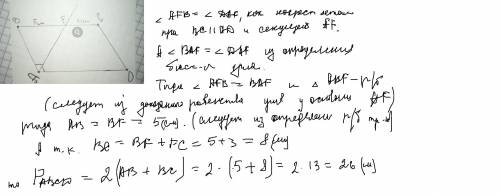 B 5 см F 3 см C
A D
∠ AFB = ∠ DAF, как накрест лежащ
при BC || AD и секущей AF.
А ∠ BAF = ∠ DAF из определения
бисс-и угла.
Тогда ∠ AFB = BAF и △ ABF – р/б
(следует из равенства углов у основ AF)
тогда AB = BF = 5 (см). (следует из определен р/б тр-а)
А т.к. BC = BF + FC = 5 + 3 = 8 (см)
то P_ABCD = 2(AB + BC) = 2 · (5 + 8) = 2 · 13 = 26 (см)